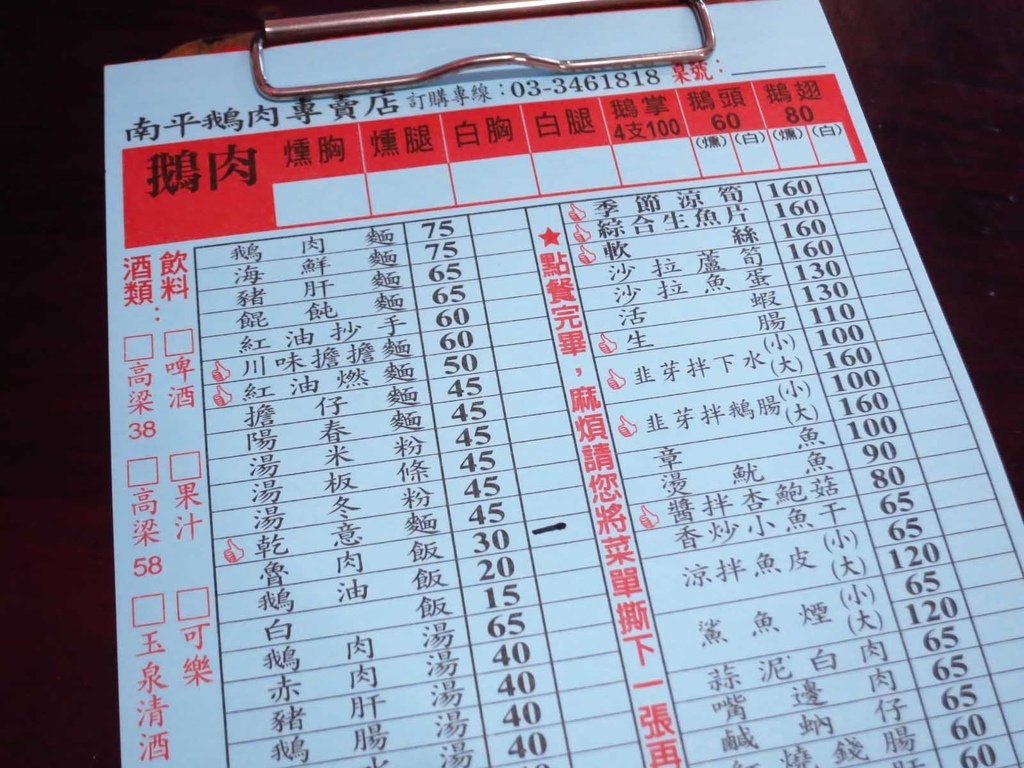 南平鵝肉專賣店 訂購專線：03-3461818 桌號：
鵝肉
燻胸 燻腿 白胸 白腿 鵝掌 4支100 鵝頭 60 (燻) (白) 鵝翅 80 (燻) (白)
飲料
酒類：
啤酒
高梁38
果汁
高梁58
可樂
玉泉清酒
鵝肉麵 75
海鮮麵 75
豬肝麵 65
餛飩麵 65
紅油抄手 60
川味擔擔麵 60
紅油燃麵 50
擔仔麵 45
陽春麵 45
湯米粉 45
湯板條 45
湯冬粉 45
乾意麵 45
魯肉飯 30
鵝油飯 20
白飯 15
鵝肉湯 65
赤肉湯 40
豬肝湯 40
鵝腸湯 40
湯 40
★點餐完畢，麻煩請您將菜單撕下一張再
季節涼筍 160
綜合生魚片 160
軟絲 160
沙拉蘆筍 160
沙拉魚蛋 130
活蝦 130
生腸 110
韭芽拌下水 (小) 100
(大) 160
韭芽拌鵝腸 (小) 100
(大) 160
章魚 100
燙魷魚 90
醬拌杏鮑菇 80
香炒小魚干 65
涼拌魚皮 (小) 65
(大) 120
鯊魚煙 (小) 65
(大) 120
蒜泥白肉 65
嘴邊肉 65
鹹蚋仔 65
燒錢腸 60
肝 60